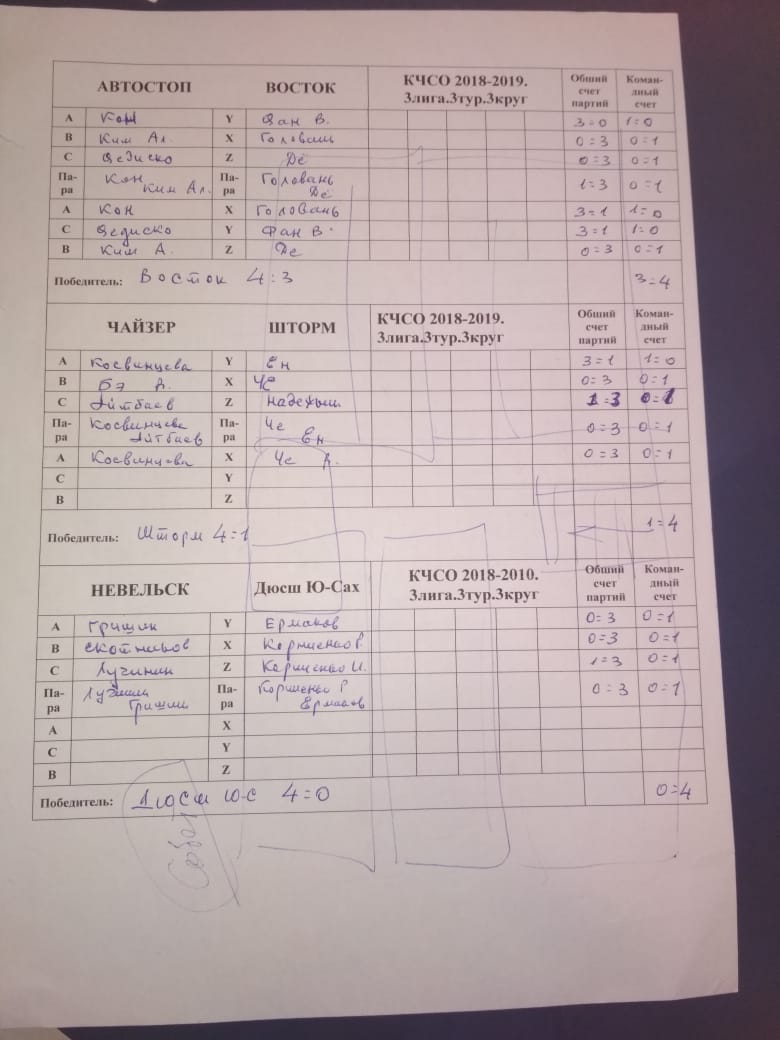 АВТОСТОП ВОСТОК КЧСО 2018-2019. 3лига.3тур.3круг Общий счет партий Коман-дный счет
A Кон Y Фан В. 3=0 1=0
B Ким Ал. X Головань 0=3 0=1
C Федиско Z Де 0=3 0=1
Па-ра Кон Ким Ал. Па-ра Головань Де 1=3 0=1
A Кон X Головань 3=1 1=0
C Федиско Y Фан В. 3=1 1=0
B Ким А. Z Де 0=3 0=1
Победитель: Восток 4:3 3=4
ЧАЙЗЕР ШТОРМ КЧСО 2018-2019. 3лига.3тур.3круг Общий счет партий Коман-дный счет
A Косвинцева Y Ен 3=1 1=0
B Бэ Д. X Че 0=3 0=1
C Айтбаев Z 1=3 0=1
Па-ра Косвинцева Айтбаев Па-ра Че Ен 0=3 0=1
A Косвинцева X Че Д. 0=3 0=1
C Y
B Z
Победитель: Шторм 4=1 1=4
НЕВЕЛЬСК Дюсш Ю-Сах КЧСО 2018-2010. 3лига.3тур.3круг Общий счет партий Коман-дный счет
A Гришин Y Ермаков 0=3 0=1
B Скотников X Корниенко Р. 0=3 0=1
C Лучинин Z Корниенко И. 1=3 0=1
Па-ра Лучинин Гришин Па-ра Корниенко Р Ермаков 0=3 0=1
A X
C Y
B Z
Победитель: Дюсш Ю-С 4=0 0=4